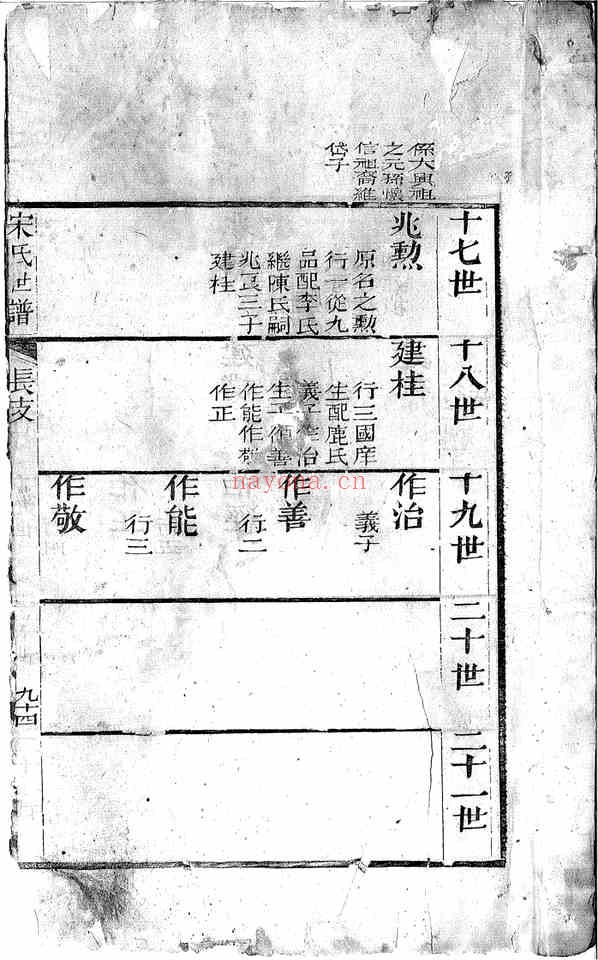 係大興祖
之元孫懷
信祖裔維
岱子
十七世
兆勲
原名之勲
行一從九
品配李氏
繼陳氏嗣
兆三子
建桂
十八世
建桂
行三國庠
生配鹿氏
義子作治
生子作善
作能作敬
作正
十九世
作治
義子
作善
行二
作能
行三
作敬
二十世
二十一世
宋氏世譜
長支
九十四
nayona.cn